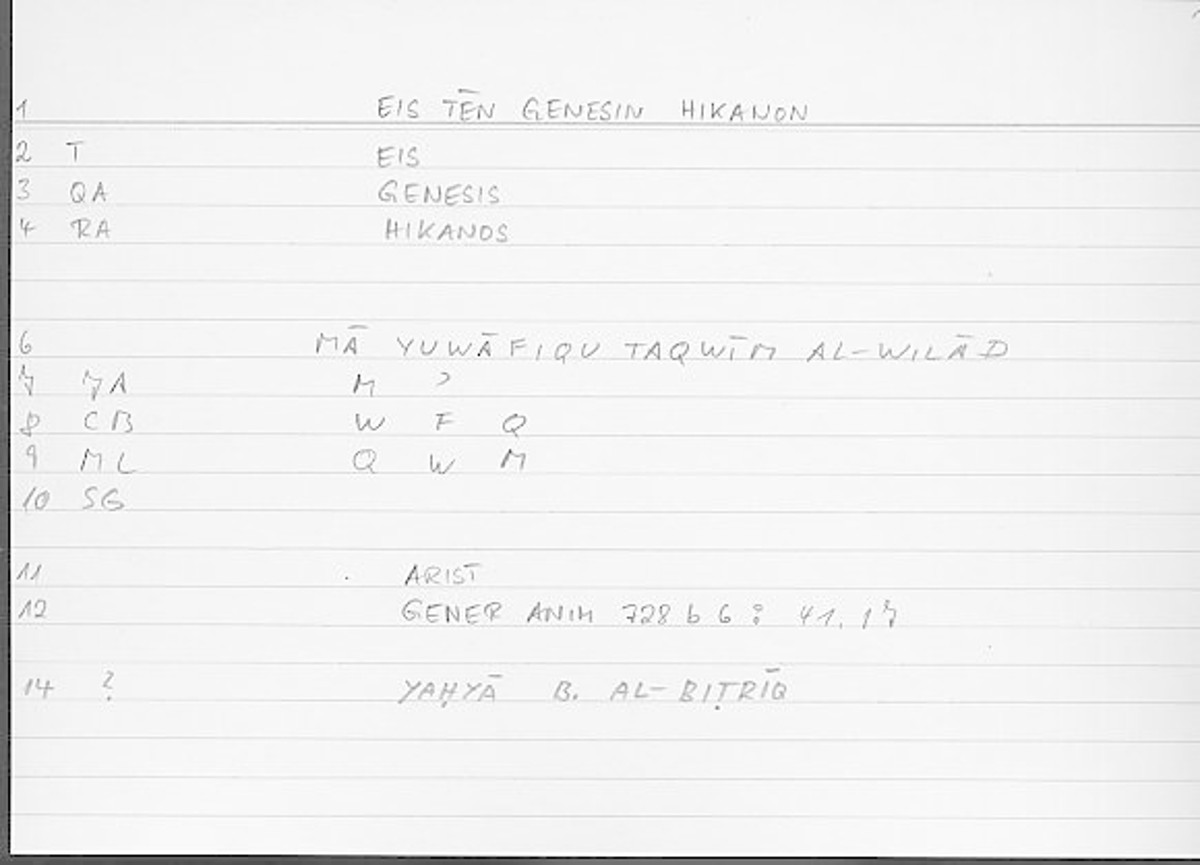 1 EIS TĒN GENESIN HIKANON
2 T EIS
3 QA GENESIS
4 RA HIKANOS
6 MĀ YUWĀFIQU TAQWĪM AL-WILĀD
7 7A M ʾ
8 CB W F Q
9 ML Q W M
10 SG
11 ARIST
12 GENER ANIM 728 b 6 : 41.17
14 ? YAḤYĀ B. AL-BIṬRĪQ